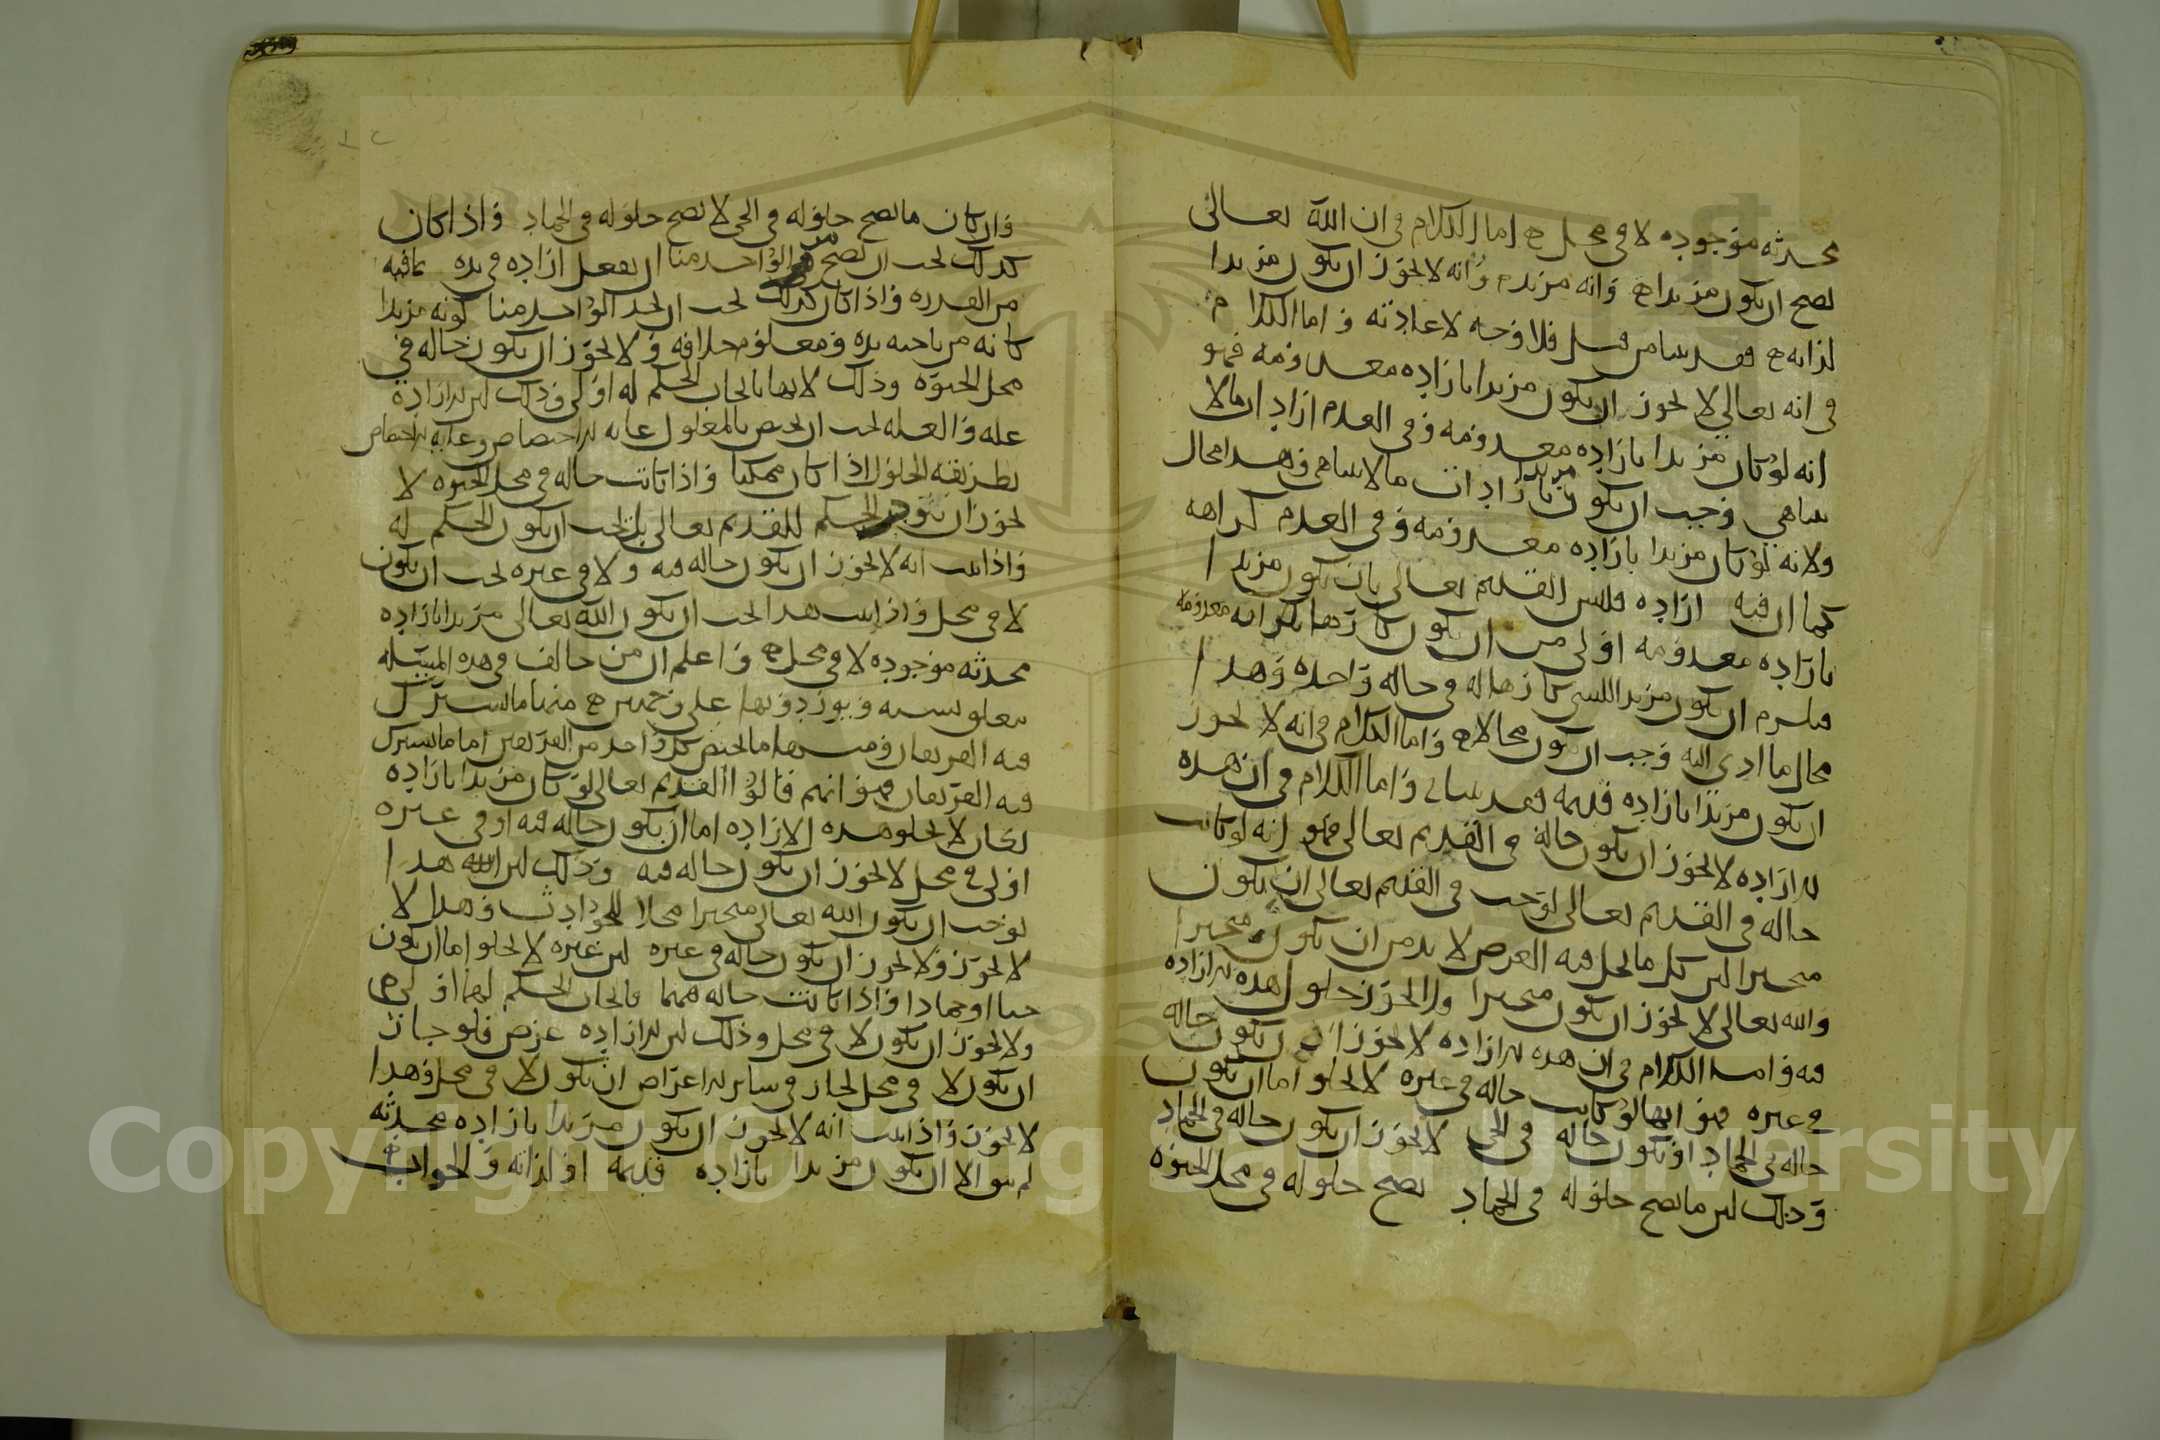 محدثه موجوده لا في محل اما الكلام في ان الله تعالى
يصح ان يكون مريدا وانه مريد وانه لا يجوز ان يكون مريدا
لذاته فقد بينا من قبل فلا وجه لاعادته واما الكلام
في انه تعالى لا يجوز ان يكون مريدا باراده معدومه فهو
انه لو كان مريدا باراده معدومه وفي العدم ارادات ما لا
يتناهى وجب ان يكون مريدا بارادات ما لا يتناهى وهذا محال
ولانه لو كان مريدا باراده معدومه وفي العدم كراهه
كما ان فيه اراده فليس القديم تعالى بان يكون مريدا
باراده معدومه اولى من ان يكون كارها بكراهه معدومه
فيلزم ان يكون مريدا للشي كارها له في حاله واحده وهذا
محال ما ادى اليه وجب ان يكون محالا واما الكلام في انه لا يجوز
ان يكون مريدا باراده قديمه فقد بينا واما الكلام في ان هذه
الاراده لا يجوز ان يكون حالة في القديم تعالى فهو انه لو كانت
حاله في القديم تعالى لوجب في القديم تعالى ان يكون
متحيزا لان كل ما يحل فيه العرض لا بد من ان يكون متحيزا
والله تعالى لا يجوز ان يكون متحيزا ولا يجوز حلول هذه الاراده
فيه واما الكلام في ان هذه الاراده لا يجوز ان يكون حاله
في غيره فهو انها لو كانت حاله في غيره لا يخلو اما ان يكون
حاله في الجماد او يكون حاله في الحي لا يجوز ان يكون حاله في الجماد
وذلك لان ما يصح حلوله في الجماد يصح حلوله في محل الحيوه
وان كان ما يصح حلوله في الحي لا يصح حلوله في الجماد واذا كان
كذلك يجب ان يصح من الواحد منا ان يفعل اراده في يده بما فيه
من القدره واذا كان كذلك يجب ان يجد الواحد منا كونه مريدا
كانه من ناحيه يده ومعلوم خلافه ولا يجوز ان يكون حاله في
محل الحيوه وذلك لانها بايجاب الحكم له اولى وذلك لان الاراده
عله والعله يجب ان يختص بالمعلول غايه الاختصاص وغايه الاختصاص
بطريقه الحلول اذا كان ممكنا واذا كانت حاله في محل الحيوه لا
يجوز ان يوجب الحكم للقديم تعالى بل يجب ان يكون الحكم له
واذا ثبت انه لا يجوز ان يكون حاله فيه ولا في غيره يجب ان يكون
لا في محل واذا ثبت هذا يجب ان يكون الله تعالى مريدا باراده
محدثه موجوده لا في محل واعلم ان من خالف في هذه المسئله
يتعلق بشبه ويوردونها على وجهين منها ما يشترك
فيه الفريقان ومنها ما يختص كل واحد من الفريقين اما ما يشترك
فيه الفريقان فهو انهم قالوا القديم تعالى لو كان مريدا باراده
لكان لا يخلو هذه الاراده اما ان يكون حاله فيه او في غيره
او لا في محل لا يجوز ان يكون حاله فيه وذلك لان الله هذا
يوجب ان يكون الله تعالى متحيزا محلا للحوادث وهذا لا
لا يجوز ولا يجوز ان يكون حاله في غيره لان غيره لا يخلو اما ان يكون
حيا او جمادا واذا كانت حاله فيهما فايجاب الحكم لهما اولى
ولا يجوز ان يكون لا في محل وذلك لان الاراده عرض فلو جاز
ان يكون لا في محل لجاز في سائر الاعراض ان يكون لا في محل وهذا
لا يجوز واذا ثبت انه لا يجوز ان يكون مريدا باراده محدثه
لم يبق الا ان يكون مريدا باراده قديمه او لذاته والجواب
Copyright © King Saud University